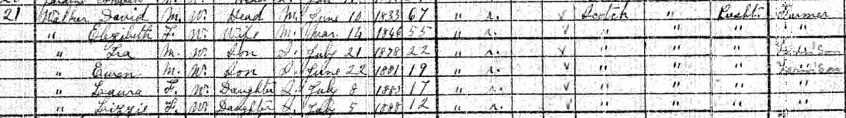 21 David M. W. Head M. June 10 1833 67 " r. √ Scotch " Presbt. Farmer
" Elizabeth F. W. Wife M. Mar 14 55 " r. √ " " " "
" Ira M. W. Son S. July 21 1878 22 " r. √ " " " Farm's Son
" Ewan M. W. Son S. June 22 1881 19 " r. √ " " " Farm's Son
" Laura F. W. Daughter S. July 8 1883 17 " r. √ " " " "
" Lizzie F. W. Daughter S. July 5 1888 12 " r. √ " " " "